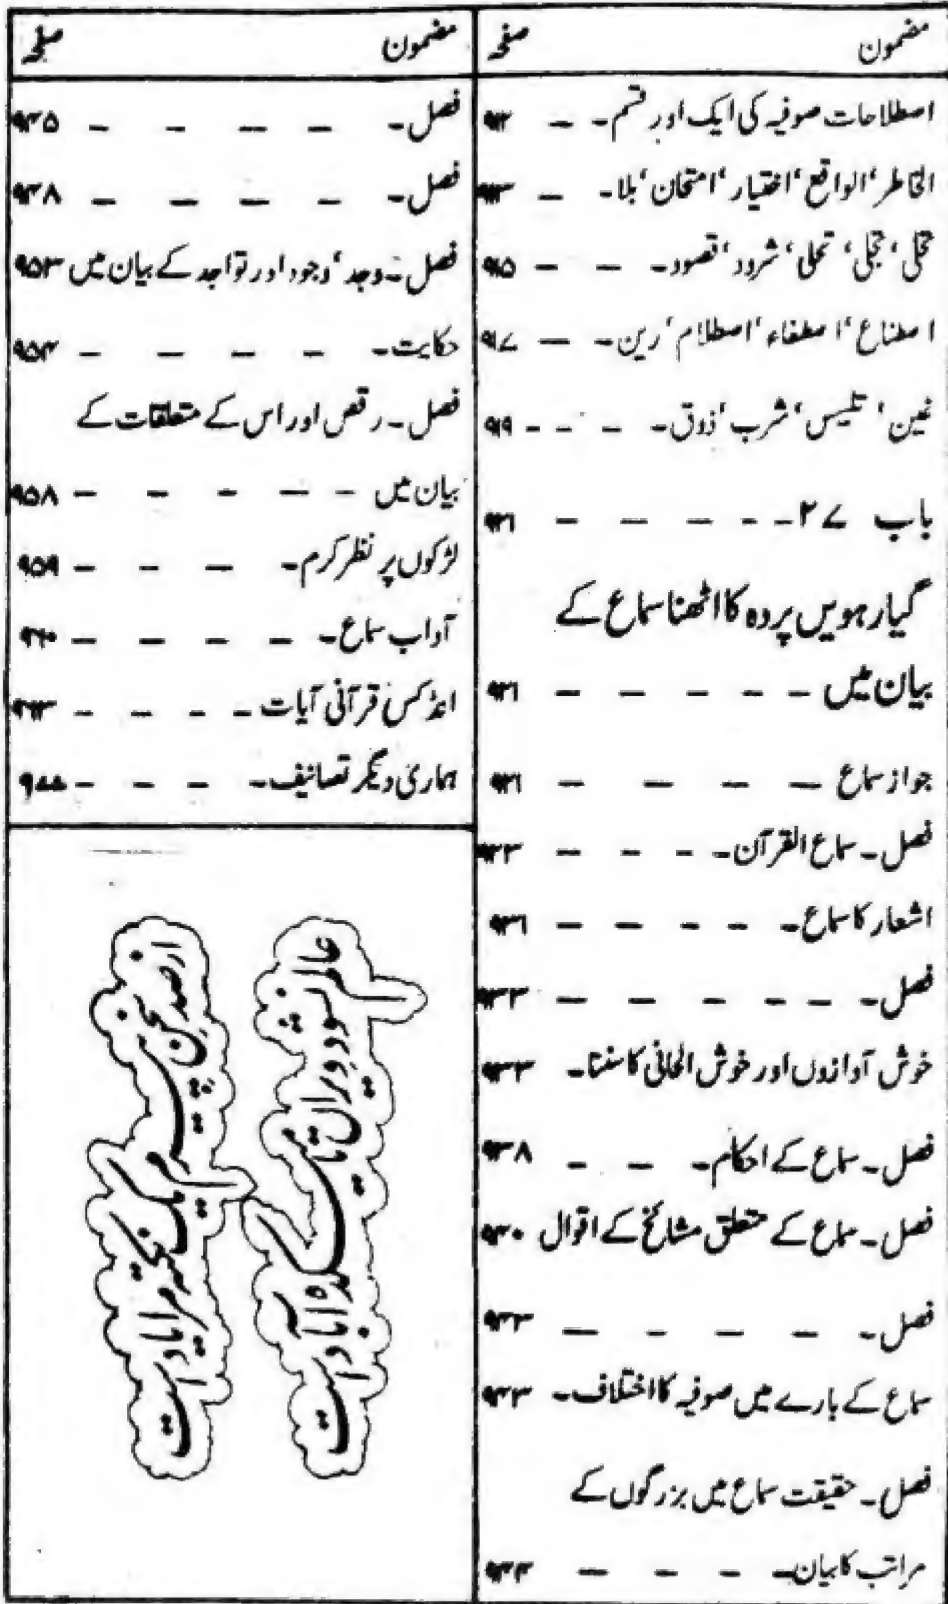 مضمون صفحہ
اصطلاحات صوفیہ کی ایک اور قسم۔ ۔ ۹۱۲
الخاطر‘ الواقع‘ اختیار‘ امتحان‘ بلا۔ ۔ ۹۱۳
تخلی‘ تجلی‘ تحلی‘ شرود‘ قصود۔ ۔ ۔ ۹۱۵
اصطناع‘ اصطفاء‘ اصطلام‘ رین۔ ۔ ۔ ۹۱۷
غین‘ تلبیس‘ شرب‘ ذوق۔ ۔ ۔ ۔ ۹۱۹
باب ۲۷۔ ۔ ۔ ۔ ۔ ۔ ۹۲۱
گیارہویں پردہ کا اٹھنا سماع کے
بیان میں ۔ ۔ ۔ ۔ ۔ ۔ ۹۲۱
جواز سماع ۔ ۔ ۔ ۔ ۔ ۹۲۱
فصل۔ سماع القرآن۔ ۔ ۔ ۔
اشعار کا سماع۔ ۔ ۔ ۔ ۔
فصل۔ ۔ ۔ ۔ ۔ ۔ ۔
خوش آوازوں اور خوش الحانی کا سننا۔
فصل۔ سماع کے احکام۔ ۔ ۔ ۔ ۹۳۸
فصل۔ سماع کے متعلق مشائخ کے اقوال ۹۴۰
فصل۔ ۔ ۔ ۔ ۔ ۔
سماع کے بارے میں صوفیہ کا اختلاف۔ ۹۴۳
فصل۔ حقیقت سماع میں بزرگوں کے
مراتب کا بیان۔ ۔ ۔ ۔ ۔ ۹۴۴
مضمون صفحہ
فصل۔ ۔ ۔ ۔ ۔ ۹۴۵
فصل۔ ۔ ۔ ۔ ۔ ۹۴۸
فصل۔ وجد‘ وجود اور تواجد کے بیان میں ۹۵۳
حکایت۔ ۔ ۔ ۔ ۔ ۔ ۹۵۴
فصل۔ رقص اور اس کے متعلقات کے
بیان میں ۔ ۔ ۔ ۔ ۔ ۔ ۹۵۸
لڑکوں پر نظر کرم۔ ۔ ۔ ۔ ۔ ۹۵۹
آداب سماع۔ ۔ ۔ ۔ ۔ ۔ ۹۶۰
انڈکس قرآنی آیات ۔ ۔ ۔ ۔ ۹۶۳
ہماری دیگر تصانیف۔ ۔ ۔ ۔ ۔ ۹۸۸
عالم نشود ویراں تا میکدہ آباد است
از صد سخن پیرم یک نکتہ مرا یاد است